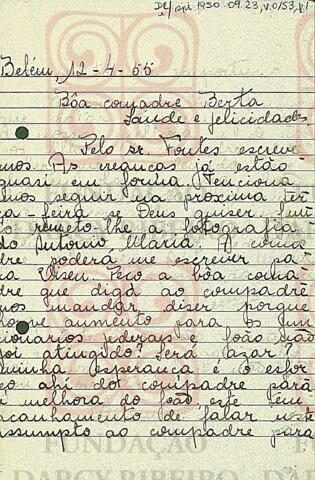 DR/spi 1950.09.23, v.0/53, p.1
Belém, 12-4-55
Bôa comadre Berta
Saude e felicidades
Pelo sr. Fontes escreve
mos. As creanças já estão
quasi em forma. Tenciona
mos seguir na proxima ter
ça-feira se Deus quiser. Jun
to remeto-lhe a fotografia
do Antonio Maria. A coma
dre poderá me escrever pa
ra Viseu. Peço a bôa coma
dre que diga ao compadre
nos mandar diser porque
houve aumento para os fun
cionarios federais e João não
foi atingido? Será azar?
minha esperança é o esfor
ço ahi do compadre para
a melhora do João este tem
acanhamento de falar neste
assumpto ao compadre para
FUNDAÇÃO
DARCY RIBEIRO